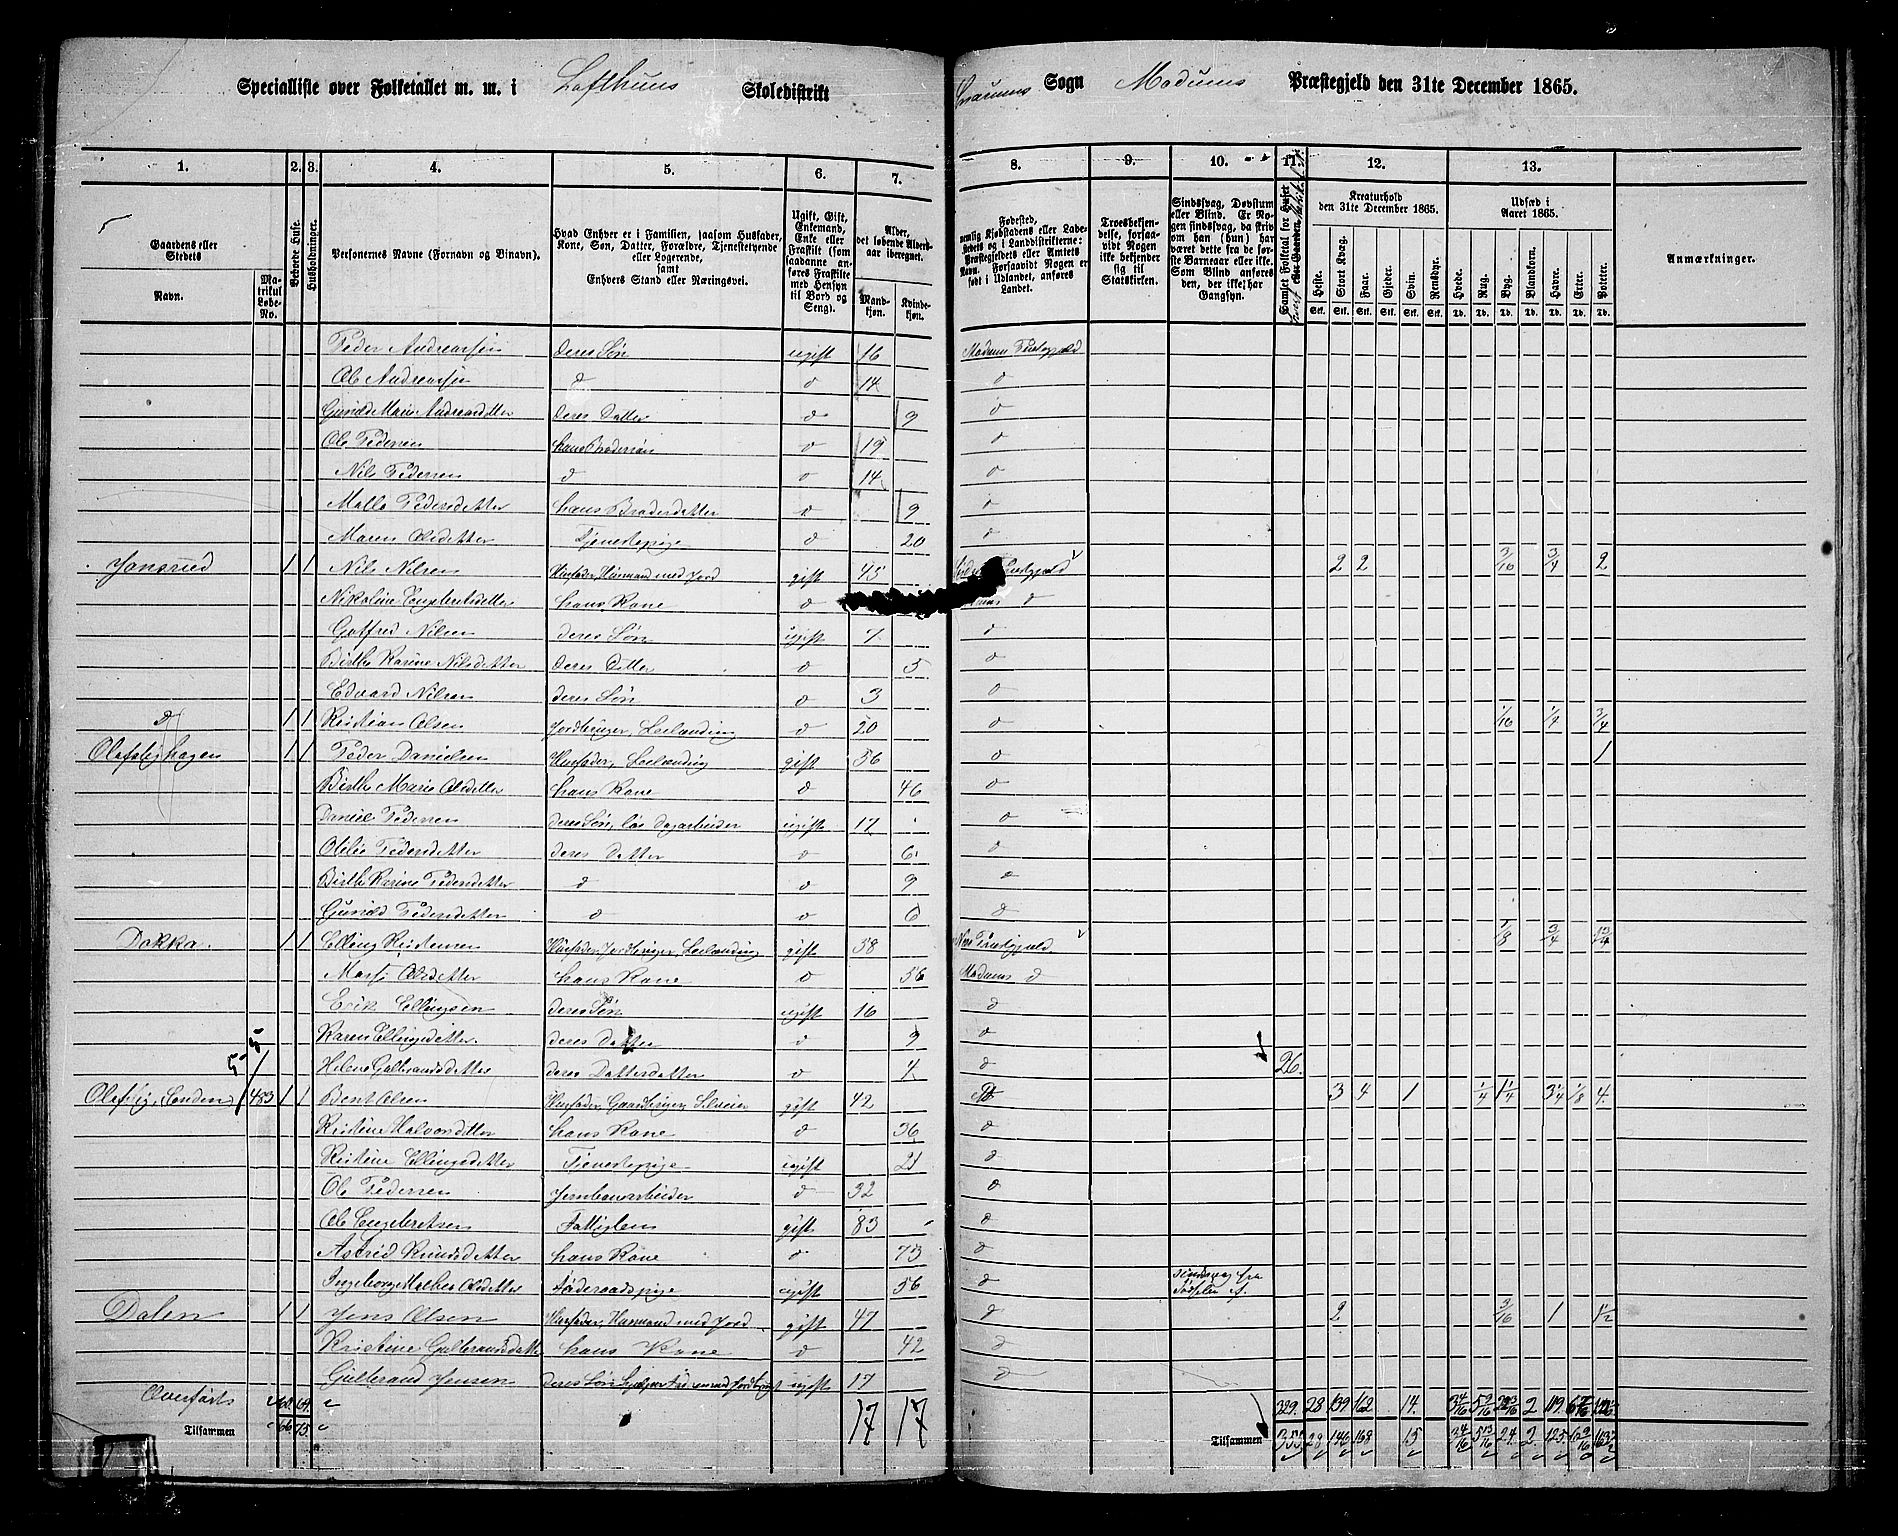 Specialliste over Folketallet m. m. i Lofthuus Skoledistrikt
Snarums Sogn Modums Præstegjeld den 31te December 1865.
1. 2. 3. 4. 5. 6. 7. 8. 9. 10. 11. 12. 13.
Gaardens eller Stedets
Navn.
Matrikul Løbe-No.
Beboede Huse.
Husholdninger.
Personernes Navne (Fornavn og Binavn).
Hvad Enhver er i Familien, saasom Husfader, Kone, Søn, Datter, Forældre, Tjenestetyende eller Logerende, samt Enhvers Stand eller Næringsvei.
Ugift, Gift, Enkemand, Enke eller Fraskilt (som saadanne anføres Fraskilte med Hensyn til Bord og Seng).
Alder, det løbende Aldersaar iberegnet.
Mandkjøn.
Kvindekjøn.
Fødested, nemlig Kjøbstadens eller Ladestedets og i Landdistrikterne: Præstegjeldets eller Amtets Navn. Forsaavidt Nogen er født i Udlandet, anføres Landet.
Troesbekjendelse, forsaavidt Nogen ikke bekjender sig til Statskirken.
Sindssvag, Døvstum eller Blind. Er Nogen sindssvag, da skrives om han (hun) har været dette fra de første Barneaar eller ikke. Som Blind anføres den, der ikke har Gangsyn.
Samlet Folketal for Huset eller Gaarden
Kreaturhold den 31te December 1865.
Heste. Stort Kvæg. Faar. Gjeder. Svin. Rensdyr.
Stk. Stk. Stk. Stk. Stk. Stk.
Udsæd i Aaret 1865.
Hvede. Rug. Byg. Blandkorn. Havre. Erter. Poteter.
Td. Td. Td. Td. Td. Td. Td.
Anmærkninger.
Peder Andreassen deres Søn ugift 16 Modums Prestegjeld
Ole Andreassen d d 14 d
Gunild Marie Andreasdtter deres Datter d 9 d
Ole Pedersen hans Brodersøn d 19 d
Nils Pedersen d d 14 d
Malla Pedersdatter hans Broderdatter d 9 d
Maren Olsdatter Tjenestepige d 20 d
Jonsrud 1 1 Nils Nilsen Husfader, Husmand med Jord gift 45 Prestegjeld 2 2 3/16 3/4 2
Nikoline Engebretsdatter hans Kone d d
Gotfred Nilsen deres Søn ugift 7 d
Birthe Karine Nilsdatter deres Datter d 5 d
Edvard Nilsen deres Søn d 3 d
d 1 1 Kristian Olsen Jordbruger, Leilænding d 20 d 1/16 1/4 3/4
1 1 Peder Danielsen Husfader, Leilænding gift 56 d 1
Birthe Marie Olsdatter hans Kone d 46 d
Daniel Pedersen deres Søn, løs Dagarbeider ugift 17 d
Pedersdatter deres Datter d 6 d
Birthe Karine Pedersdatter d d 9 d
Gunild Pedersdatter d d 6 d
Dokka 1 1 Elling Kristensen Husfader, Jordbruger, Leilænding gift 58 Næs Prestegjeld 1/8 3/4
Marthe Olsdatter hans Kone d 56 Modums d
Erik Ellingsen deres Søn ugift 16 d
Karen Ellingsdatter deres Datter d 9 d
Helene Gulbrandsdatter deres Datterdatter d 4 d 26.
Søndre 483 1 1 Bent Olsen Husfader, Gaardbruger, Selveier gift 42 d 3 4 1 1/4 1 1/4 3 1/4 1/8 4
Kristine Halvorsdatter hans Kone d 36 d
Kristine Ellingsdatter Tjenestepige ugift 21 d
Ole Pedersen Jernbanearbeider d 32 d
Ole Engebretsen Fattiglem gift 83 d
Astrid Knudsdatter hans Kone d 73 d
Ingeborg Malhea Olsdatter Føderaadspige ugift 56 d sindssvag fra Fødselen af
Dalen 1 1 Jens Olsen Husfader, Husmand med Jord gift 47 d 2 3/16 1 1 1/2
Kristine Gulbrandsdatter hans Kone d 42 d
Gulbrand Jensen deres Søn, hjelper Fad. med Jordbruget ugift 17 d
Overførts 329. 28 139 162 14. 2
Tilsammen 17 17 Tilsammen 28 146 168 15 24. 2. 125.